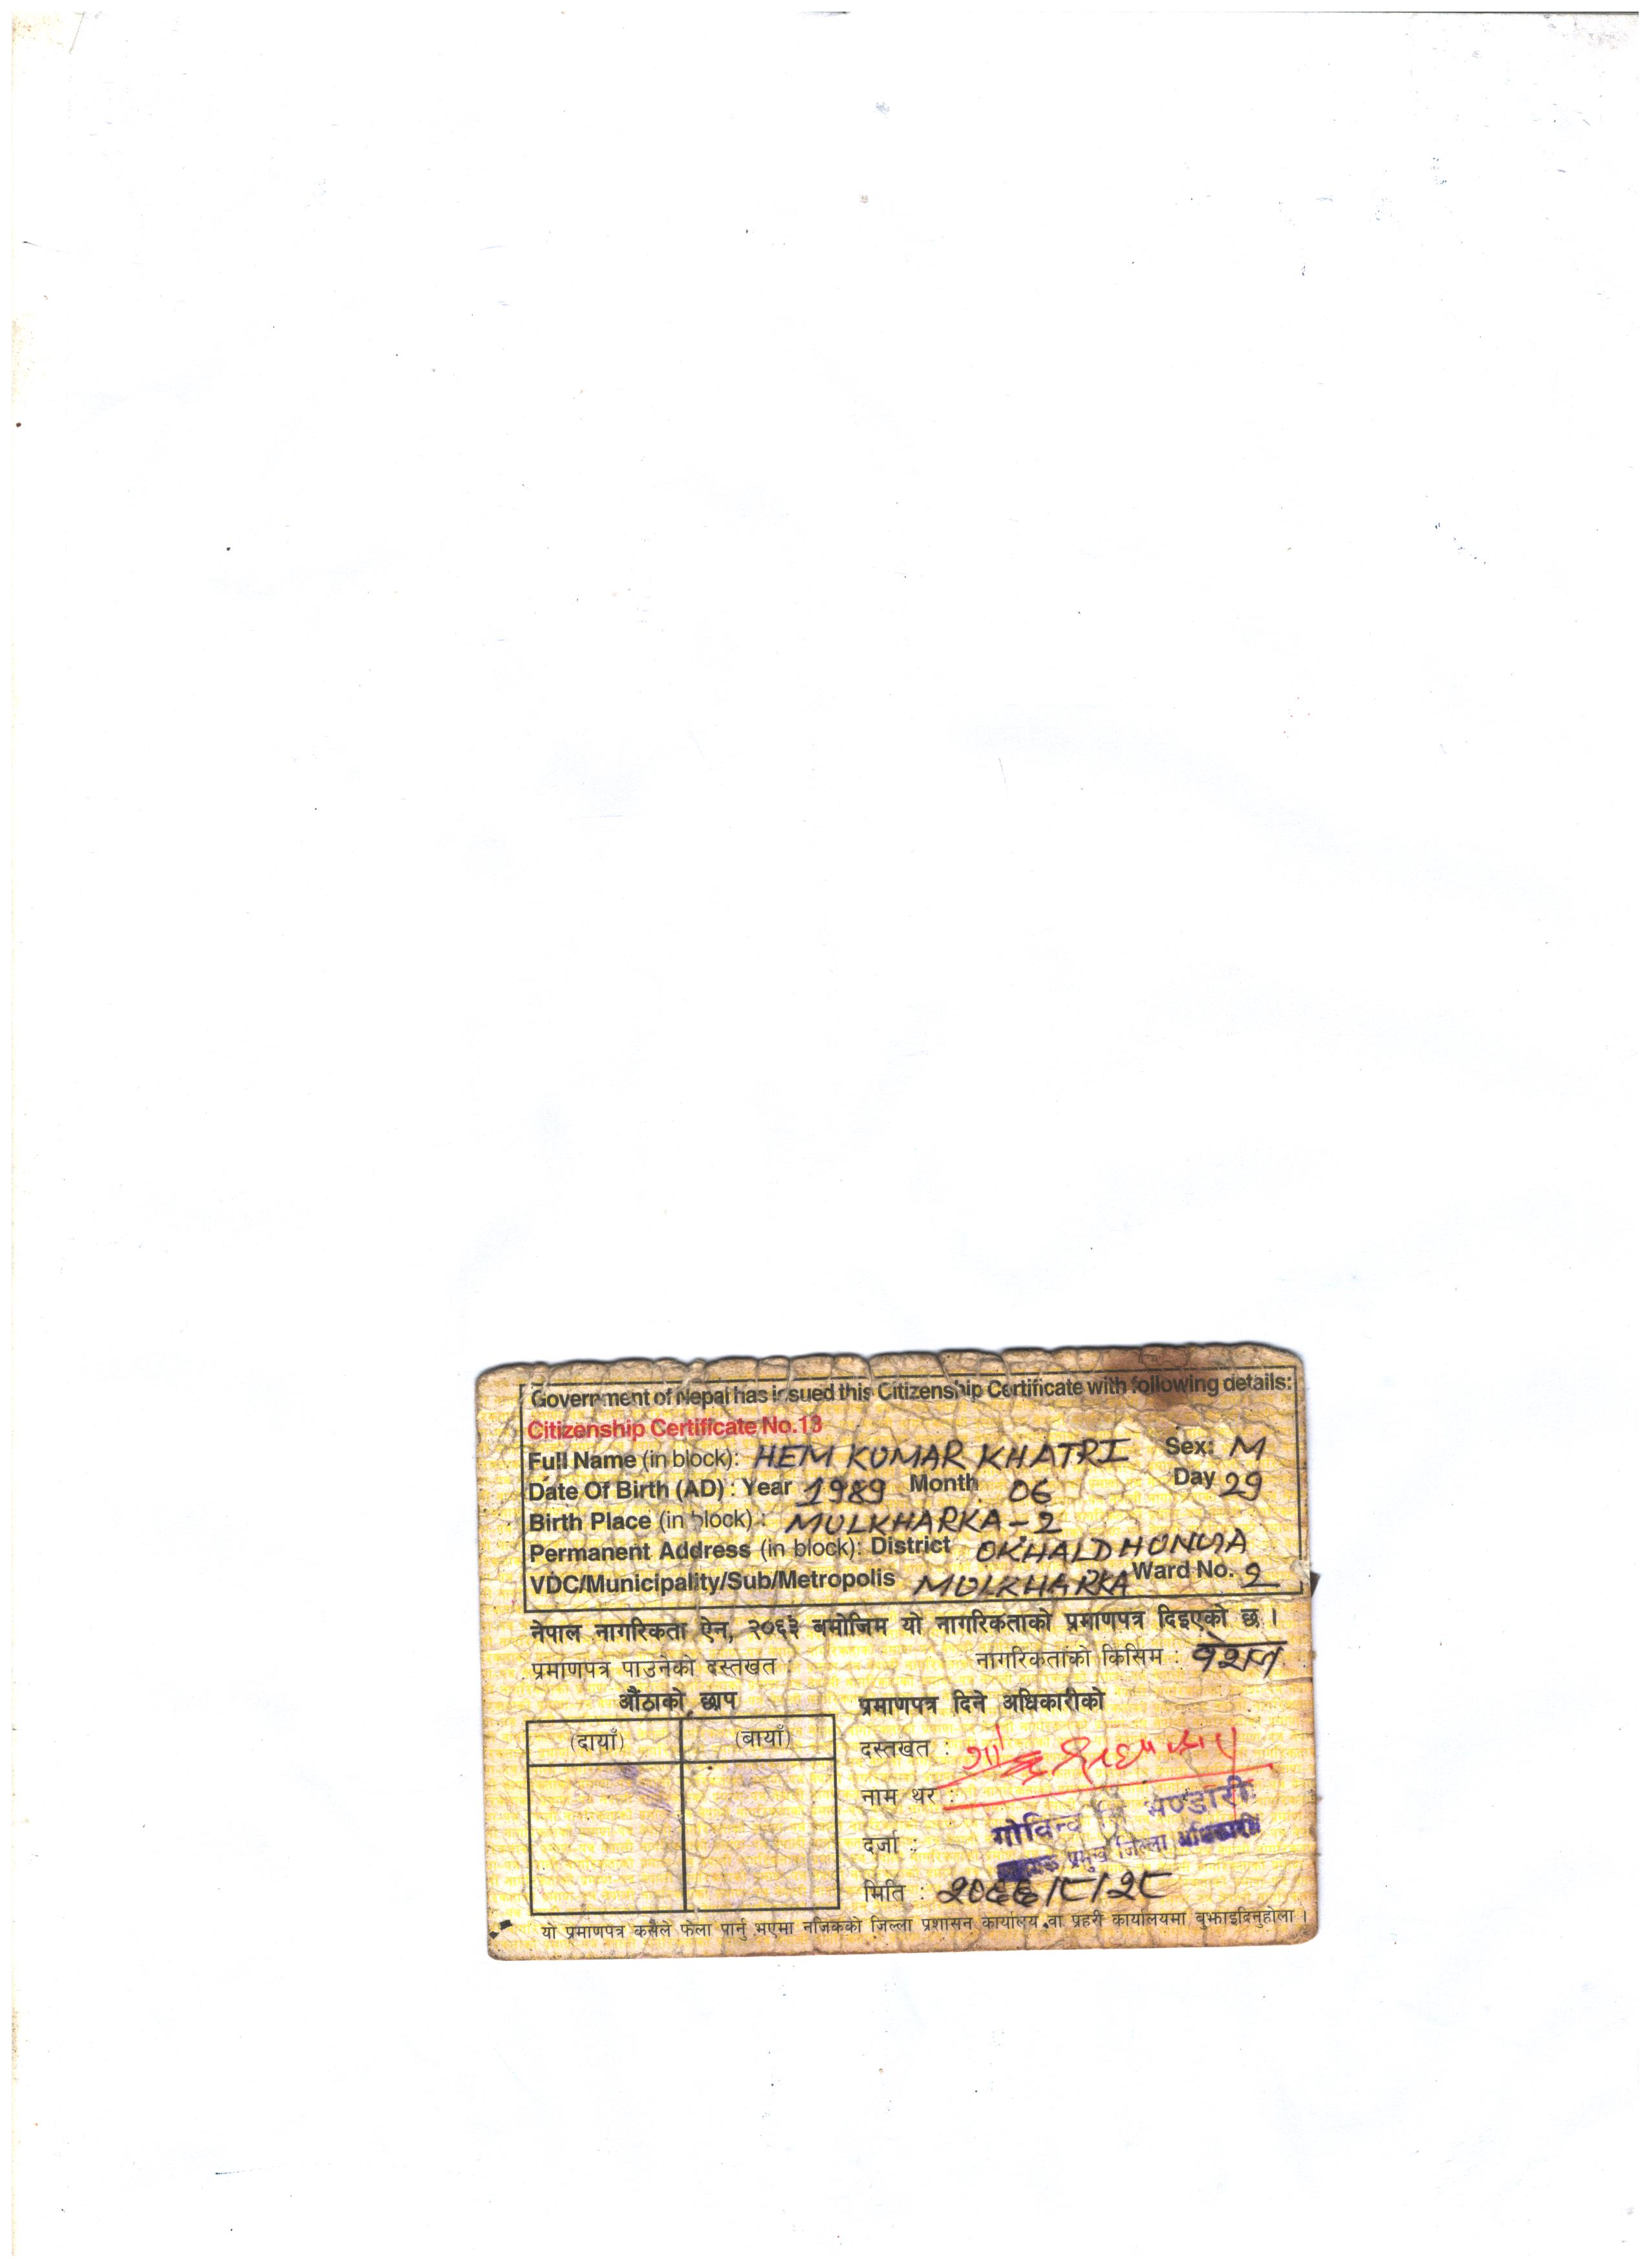 Government of Nepal has issued this Citizenship Certificate with following details:
Citizenship Certificate No.13
Full Name (in block): HEM KUMAR KHATRI Sex: M
Date Of Birth (AD) : Year 1989 Month 06 Day 29
Birth Place (in block) : MULKHARKA - 2
Permanent Address (in block): District OKHALDHUNGA
VDC/Municipality/Sub/Metropolis MULKHARKA Ward No. 2
नेपाल नागरिकता ऐन, २०६३ बमोजिम यो नागरिकताको प्रमाणपत्र दिइएको छ ।
प्रमाणपत्र पाउनेको दस्तखत नागरिकताको किसिम : वंशज
औंठाको छाप प्रमाणपत्र दिने अधिकारीको
(दायाँ) (बायाँ) दस्तखत :
नाम थर : गोविन्द भण्डारी
दर्जा : प्रमुख जिल्ला अधिकारी
मिति : २०६६/८/२८
यो प्रमाणपत्र कसैले फेला पार्नु भएमा नजिकको जिल्ला प्रशासन कार्यालय वा प्रहरी कार्यालयमा बुझाइदिनुहोला ।